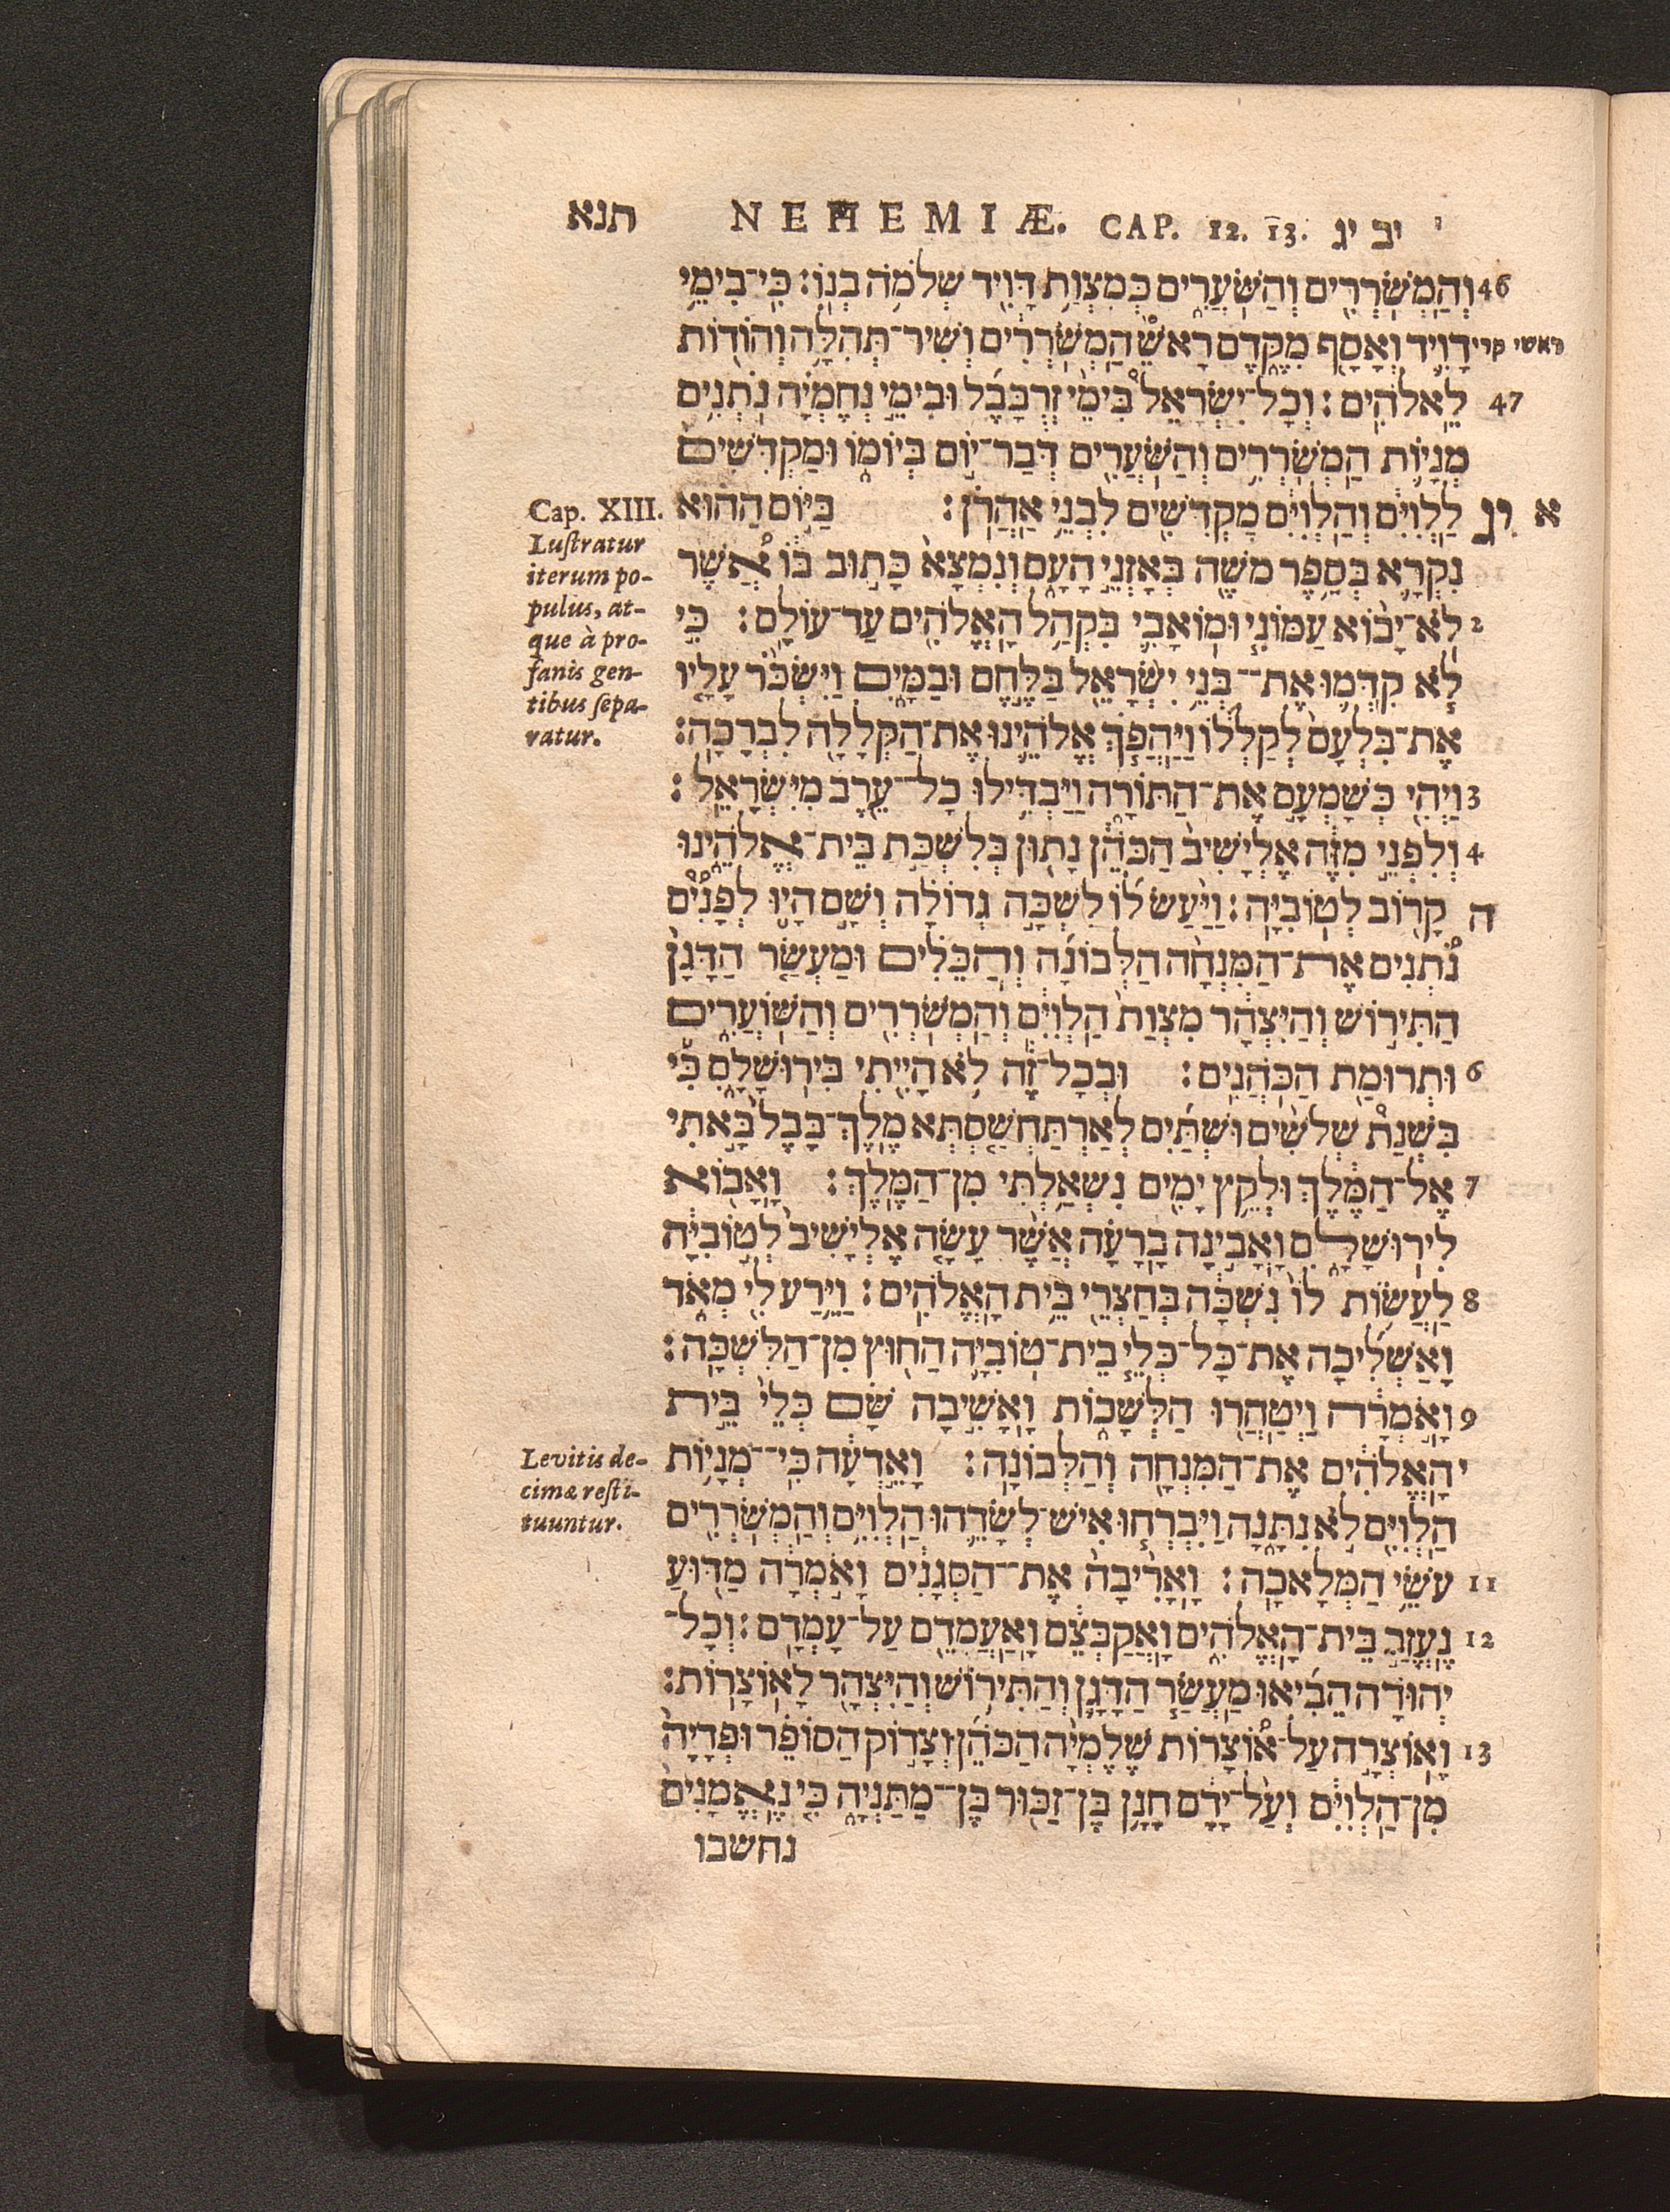 תנא NEHEMIÆ. CAP. 12. 13. יב יג
46 וְהַמְשֹׁרְרִים וְהַשֹּׁעֲרִים כְּמִצְוַת דָּוִיד שְׁלֹמֹה בְנוֹ׃ כִּי־בִימֵי
ראשי קרי דָוִיד וְאָסָף מִקֶּדֶם רָאשׁ הַמְשֹׁרְרִים וְשִׁיר־תְּהִלָּה וְהוֹדוֹת
47 לֵאלֹהִים׃ וְכָל־יִשְׂרָאֵל בִּימֵי זְרֻבָּבֶל וּבִימֵי נְחֶמְיָה נֹתְנִים
מְנָיוֹת הַמְשֹׁרְרִים וְהַשֹּׁעֲרִים דְּבַר־יוֹם בְּיוֹמוֹ וּמַקְדִּשִׁים
א יג לַלְוִיִּם וְהַלְוִיִּם מַקְדִּשִׁים לִבְנֵי אַהֲרֹן׃ בַּיּוֹם הַהוּא
Cap. XIII.
Lustratur
iterum po-
pulus, at-
que à pro-
fanis gen-
tibus sepa-
ratur.
נִקְרָא בְּסֵפֶר מֹשֶׁה בְּאָזְנֵי הָעָם וְנִמְצָא כָּתוּב בּוֹ אֲשֶׁר
2 לֹא־יָבוֹא עַמּוֹנִי וּמוֹאָבִי בִּקְהַל הָאֱלֹהִים עַד־עוֹלָם׃ כִּי
לֹא קִדְּמוּ אֶת־בְּנֵי יִשְׂרָאֵל בַּלֶּחֶם וּבַמָּיִם וַיִּשְׂכֹּר עָלָיו
אֶת־בִּלְעָם לְקַלְלוֹ וַיַּהֲפֹךְ אֱלֹהֵינוּ אֶת־הַקְּלָלָה לִבְרָכָה׃
3 וַיְהִי כְּשָׁמְעָם אֶת־הַתּוֹרָה וַיַּבְדִּילוּ כָל־עֵרֶב מִיִּשְׂרָאֵל׃
4 וְלִפְנֵי מִזֶּה אֶלְיָשִׁיב הַכֹּהֵן נָתוּן בְּלִשְׁכַּת בֵּית־אֱלֹהֵינוּ
ה קָרוֹב לְטוֹבִיָּה׃ וַיַּעַשׂ לוֹ לִשְׁכָּה גְדוֹלָה וְשָׁם הָיוּ לְפָנִים
נֹתְנִים אֶת־הַמִּנְחָה הַלְּבוֹנָה וְהַכֵּלִים וּמַעְשַׂר הַדָּגָן
הַתִּירוֹשׁ וְהַיִּצְהָר מִצְוַת הַלְוִיִּם וְהַמְשֹׁרְרִים וְהַשּׁוֹעֲרִים
6 וּתְרוּמַת הַכֹּהֲנִים׃ וּבְכָל־זֶה לֹא הָיִיתִי בִּירוּשָׁלִָם כִּי
בִּשְׁנַת שְׁלֹשִׁים וּשְׁתַּיִם לְאַרְתַּחְשַׁסְתְּא מֶלֶךְ־בָּבֶל בָּאתִי
7 אֶל־הַמֶּלֶךְ וּלְקֵץ יָמִים נִשְׁאַלְתִּי מִן־הַמֶּלֶךְ׃ וָאָבוֹא
לִירוּשָׁלִָם וָאָבִינָה בָרָעָה אֲשֶׁר עָשָׂה אֶלְיָשִׁיב לְטוֹבִיָּה
8 לַעֲשׂוֹת לוֹ נִשְׁכָּה בְּחַצְרֵי בֵּית הָאֱלֹהִים׃ וַיֵּרַע לִי מְאֹד
וָאַשְׁלִיכָה אֶת־כָּל־כְּלֵי בֵית־טוֹבִיָּה הַחוּץ מִן־הַלִּשְׁכָּה׃
9 וָאֹמְרָה וַיְטַהֲרוּ הַלְּשָׁכוֹת וָאָשִׁיבָה שָּׁם כְּלֵי בֵּית
י הָאֱלֹהִים אֶת־הַמִּנְחָה וְהַלְּבוֹנָה׃ וָאֵדְעָה כִּי־מְנָיוֹת
Levitis de-
cimæ resti-
tuuntur.
הַלְוִיִּם לֹא נִתָּנָה וַיִּבְרְחוּ אִישׁ־לְשָׂדֵהוּ הַלְוִיִּם וְהַמְשֹׁרְרִים
11 עֹשֵׂי הַמְּלָאכָה׃ וָאָרִיבָה אֶת־הַסְּגָנִים וָאֹמְרָה מַדּוּעַ
12 נֶעֱזַב בֵּית־הָאֱלֹהִים וָאֶקְבְּצֵם וָאַעֲמִדֵם עַל־עָמְדָם׃ וְכָל־
יְהוּדָה הֵבִיאוּ מַעְשַׂר הַדָּגָן וְהַתִּירוֹשׁ וְהַיִּצְהָר לָאוֹצָרוֹת׃
13 וָאוֹצְרָה עַל־אוֹצָרוֹת שֶׁלֶמְיָה הַכֹּהֵן וְצָדוֹק הַסּוֹפֵר וּפְדָיָה
מִן־הַלְוִיִּם וְעַל־יָדָם חָנָן בֶּן־זַכּוּר בֶּן־מַתַּנְיָה כִּי נֶאֱמָנִים
נחשבו